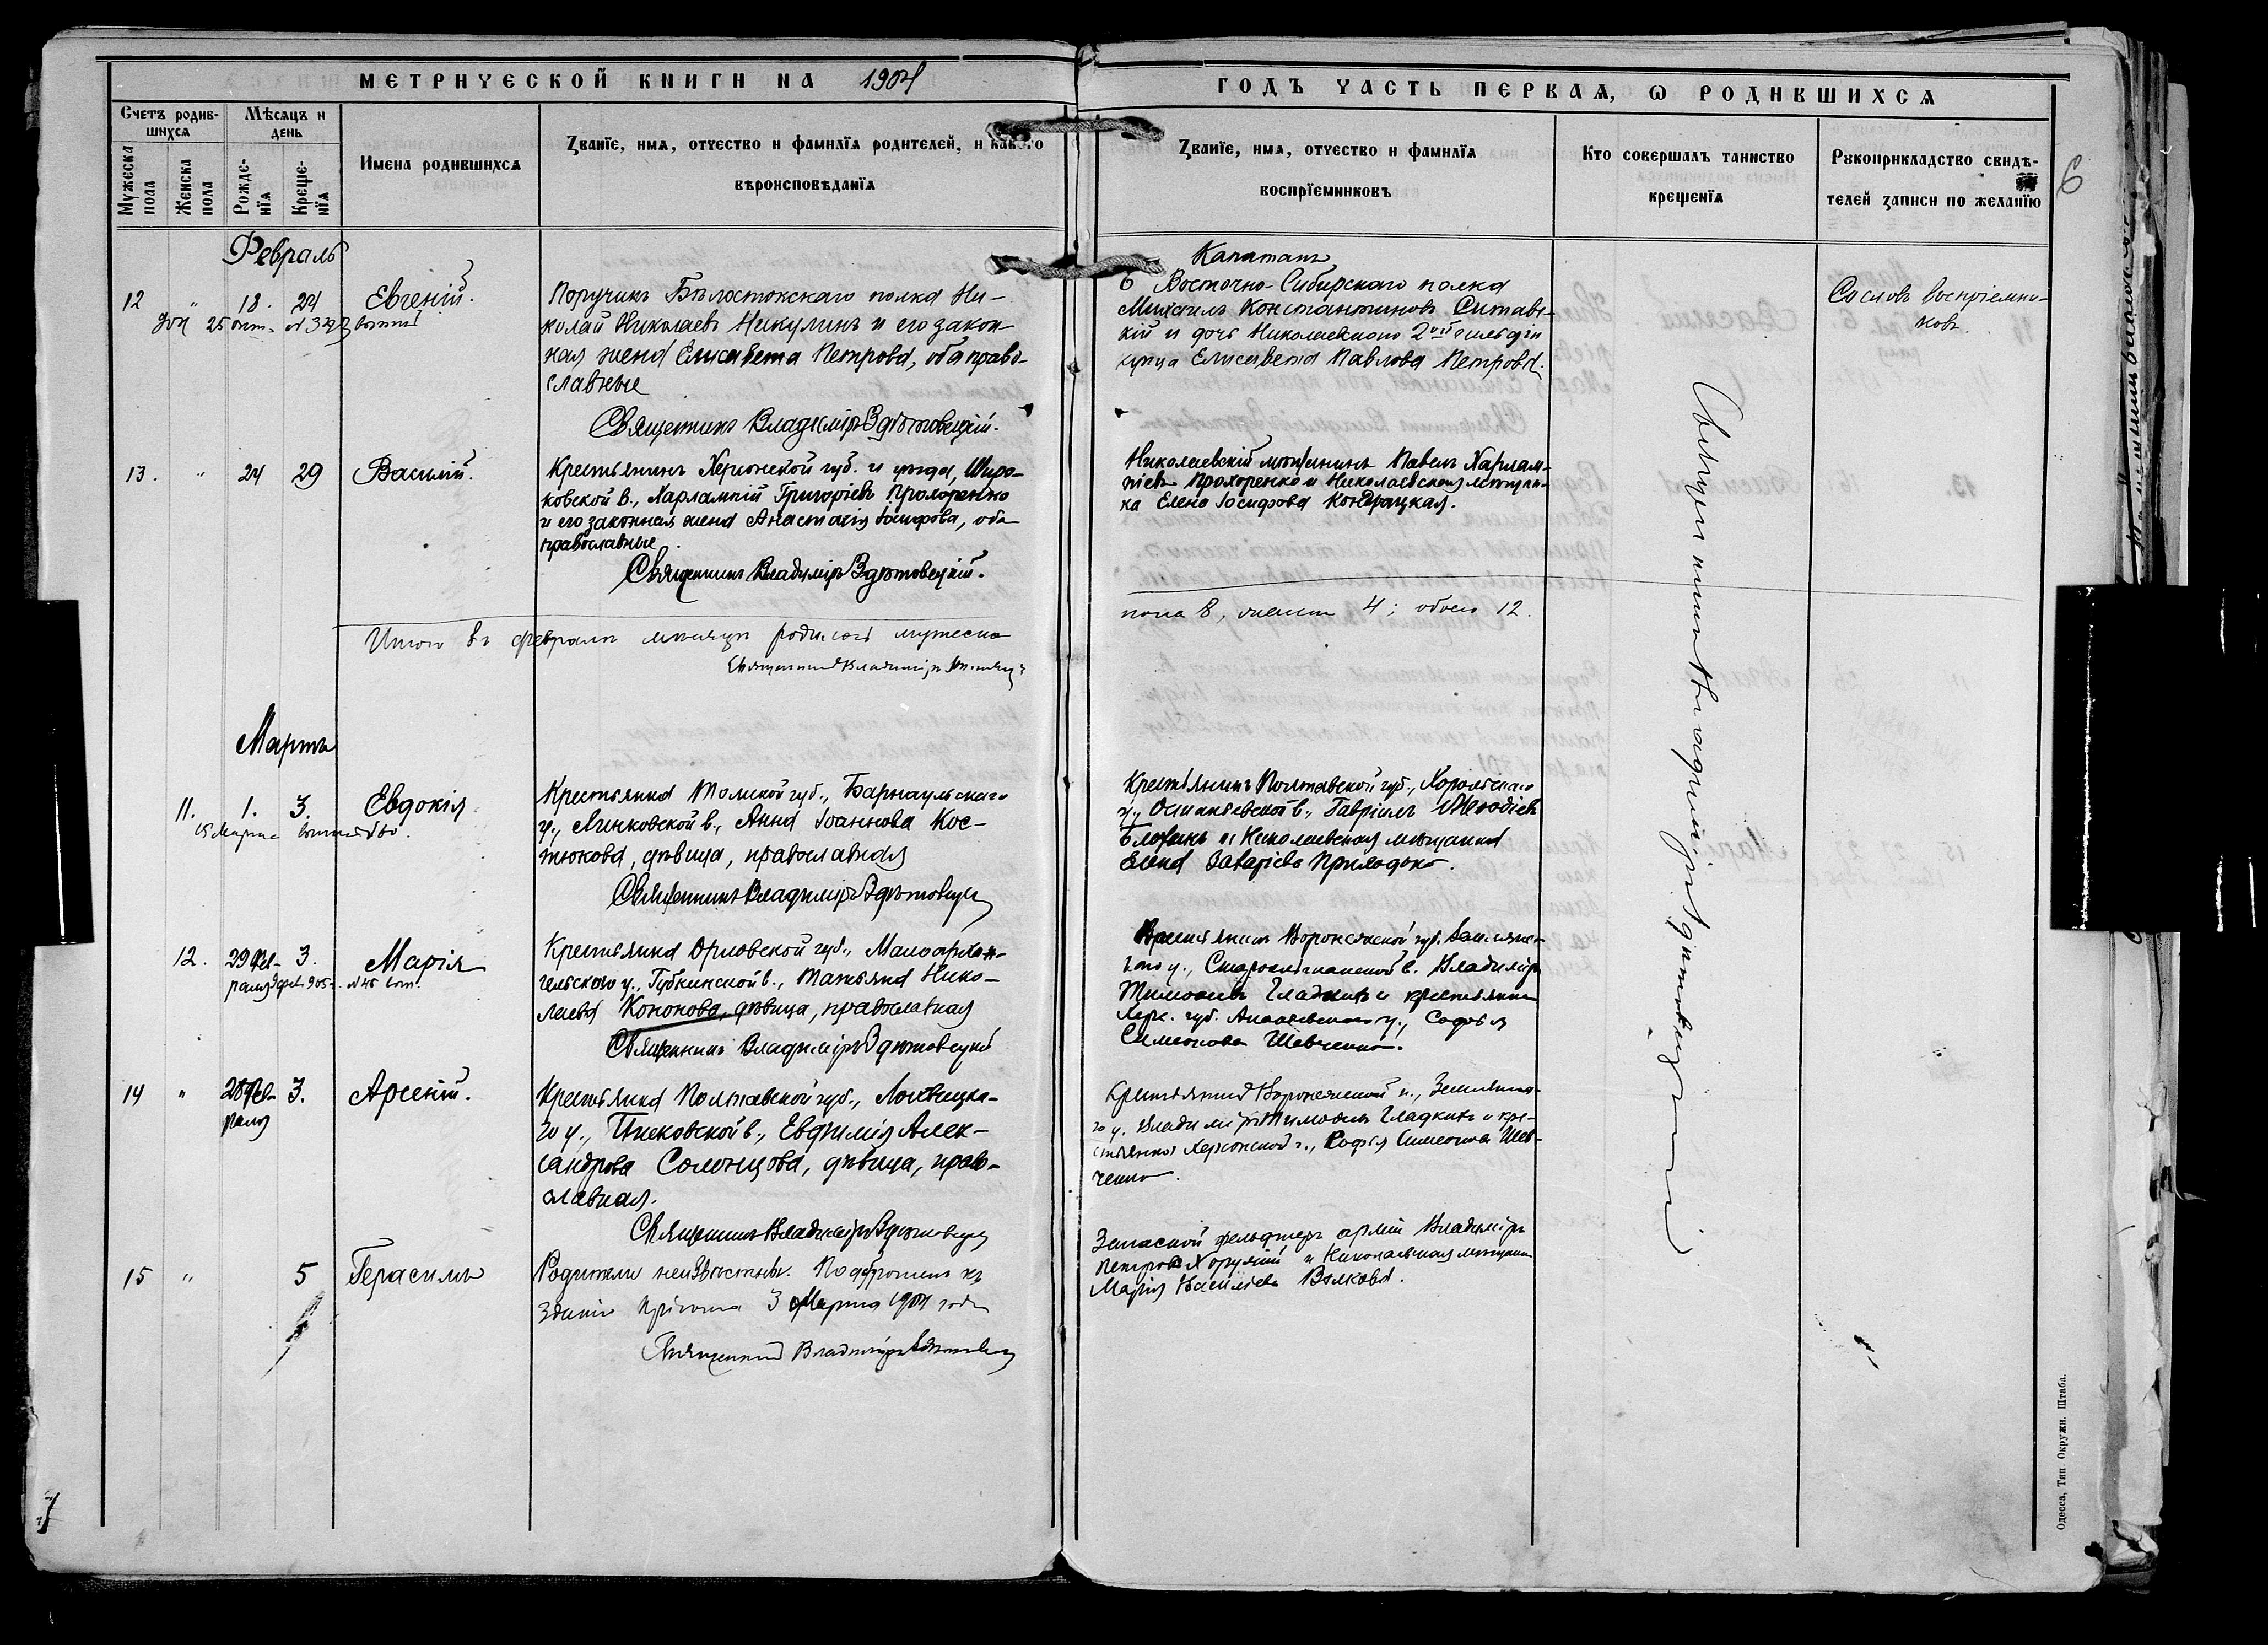 МЕТРИЧЕСКОЙ КНИГИ НА 1904
ГОДЪ ЧАСТЬ ПЕРВАѦ, Ѡ РОДИВШИХСѦ
Счетъ родив-
шихсѧ
Мужеска
пола
Женска
пола
Мѣсѧцъ и
день
Рожде-
нїѧ
Креще-
нїѧ
Имена родившихсѧ
Званїе, имѧ, отчество и фамилїѧ родителей, и какого
вѣроисповѣданїѧ
Званїе, имѧ, отчество и фамилїѧ
воспрїемниковъ
Кто совершалъ таинство
крещенїѧ
Рукоприкладство свидѣ-
телей записи по желанїю
6
Февраль
12 " 18. 24 Евгеній.
Поручикъ Бѣлостокскаго полка Ни-
колай Николаевъ Никулинъ и его закон-
ная жена Елисавета Петрова, оба право-
славные
Священникъ Владиміръ
Капитанъ
6 Восточно-Сибирскаго полка
Михаилъ Константиновъ
кій и дочь Николаевскаго 2ой гильдіи
купца Елисавета Павлова Петрова.
Со словъ воспріемни-
ковъ.
13. " 24 29 Василій.
Крестьянинъ Херсонской губ. и уѣзда, Широ-
ковской в., Харлампій Григоріевъ Прохоренко
и его законная жена Анастасія Іосифова, оба
православные.
Священникъ Владиміръ
Николаевскій мѣщанинъ Павелъ Харлам-
піевъ Прохоренко и Николаевская мѣщан-
ка Елена Іосифова Кондрацкая.
Итого въ февралѣ мѣсяцѣ родилось мужеска
пола 8, женск 4; обоего 12.
Священникъ Владиміръ
Мартъ
11. 1. 3. Евдокія
Крестьянка Томской губ., Барнаульскаго
у., в., Анна Іоаннова Кос-
тюкова, дѣвица, православная
Священникъ Владиміръ
Крестьянинъ Полтавской губ., Хорольскаго
у., в., Гавріилъ
и Николаевская мѣщанка
Елена Захаріева Приходько.
12. 29 Фев- 3. Марія
раля
Крестьянка Орловской губ., Малоархан-
гельскаго у., Губкинской в., Татьяна Нико-
лаева Кононова, дѣвица, православная
Священникъ Владиміръ
Крестьянинъ Воронежской губ. Землянс-
каго у., в. Владиміръ
Тимофеевъ Гладкихъ и крестьянка
Херс. губ. Ананьевскаго у., Софія
Симеонова Шевченко.
14 " 28 Фев- 3. Арсеній.
раля
Крестьянка Полтавской губ., Лохвицка-
го у., в., Евфимія Алек-
сандрова Солонцова, дѣвица, право-
славная.
Священникъ Владиміръ
Крестьянинъ Воронежской г., Землянска-
го у. Владиміръ Тимофеевъ Гладкихъ и кре-
стьянка Херсонской г., Софія Симеонова Шев-
ченко.
15 " 5 Герасимъ
Родители неизвѣстны. Подброшенъ къ
зданію пріюта 3 Марта 1904 года
Священникъ Владиміръ
Запасной фельдшеръ арміи Владиміръ
Петровъ Хоружій и Николаевская мѣщанка
Марія Васильева Волкова.
Священникъ Владиміръ
Одесса, Тип. Окружн. Штаба.